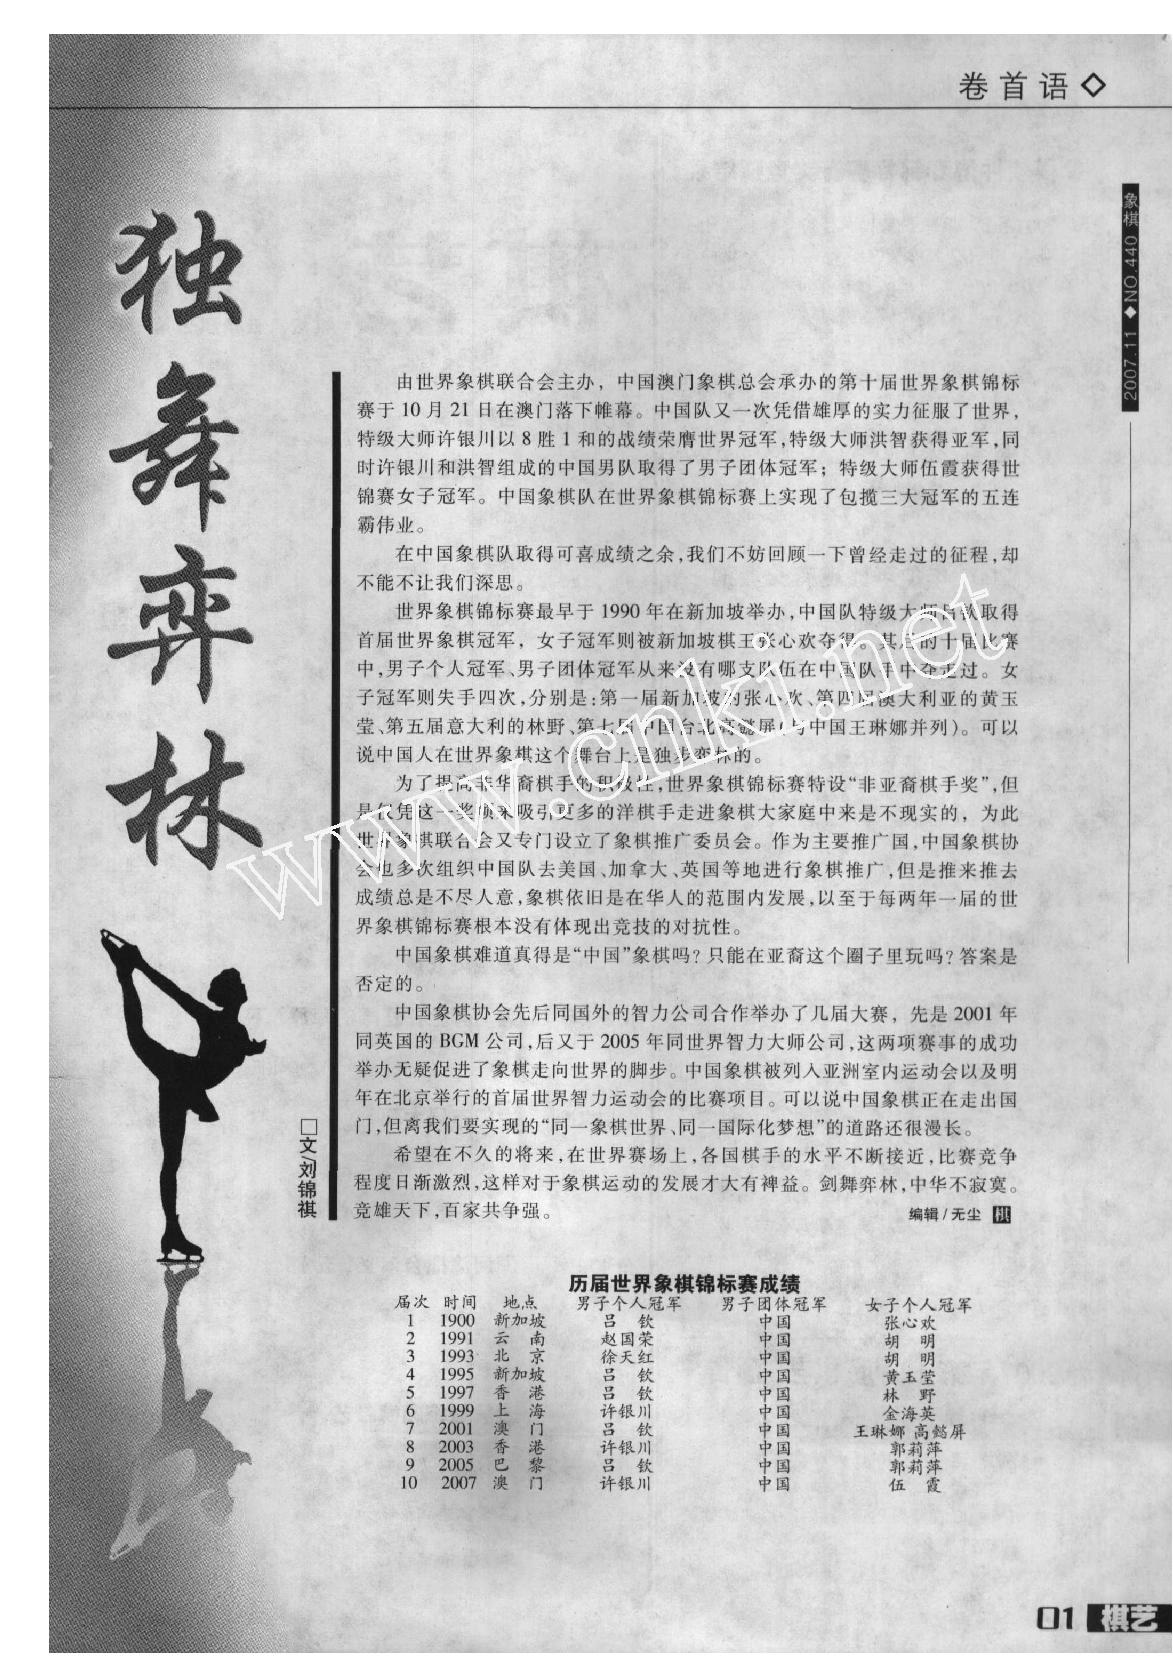 卷首语◇
象棋 2007.11◆NO.440
独舞弈林
□文/刘锦祺
由世界象棋联合会主办，中国澳门象棋总会承办的第十届世界象棋锦标
赛于10月21日在澳门落下帷幕。中国队又一次凭借雄厚的实力征服了世界，
特级大师许银川以8胜1和的战绩荣膺世界冠军，特级大师洪智获得亚军，同
时许银川和洪智组成的中国男队取得了男子团体冠军；特级大师伍霞获得世
锦赛女子冠军。中国象棋队在世界象棋锦标赛上实现了包揽三大冠军的五连
霸伟业。
在中国象棋队取得可喜成绩之余，我们不妨回顾一下曾经走过的征程，却
不能不让我们深思。
世界象棋锦标赛最早于1990年在新加坡举办，中国队特级大师吕钦取得
首届世界象棋冠军，女子冠军则被新加坡棋王张心欢夺得。其后的十届比赛
中，男子个人冠军、男子团体冠军从来没有哪支队伍在中国队手中夺走过。女
子冠军则失手四次，分别是：第一届新加坡的张心欢、第四届澳大利亚的黄玉
莹、第五届意大利的林野、第七届中国台北高懿屏（与中国王琳娜并列）。可以
说中国人在世界象棋这个舞台上是独步弈林的。
为了提高非华裔棋手的积极性，世界象棋锦标赛特设“非亚裔棋手奖”，但
是仅凭这一奖项来吸引更多的洋棋手走进象棋大家庭中来是不现实的，为此
世界象棋联合会又专门设立了象棋推广委员会。作为主要推广国，中国象棋协
会也多次组织中国队去美国、加拿大、英国等地进行象棋推广，但是推来推去
成绩总是不尽人意，象棋依旧是在华人的范围内发展，以至于每两年一届的世
界象棋锦标赛根本没有体现出竞技的对抗性。
中国象棋难道真得是“中国”象棋吗？只能在亚裔这个圈子里玩吗？答案是
否定的。
中国象棋协会先后同国外的智力公司合作举办了几届大赛，先是2001年
同英国的BGM公司，后又于2005年同世界智力大师公司，这两项赛事的成功
举办无疑促进了象棋走向世界的脚步。中国象棋被列入亚洲室内运动会以及明
年在北京举行的首届世界智力运动会的比赛项目。可以说中国象棋正在走出国
门，但离我们要实现的“同一象棋世界、同一国际化梦想”的道路还很漫长。
希望在不久的将来，在世界赛场上，各国棋手的水平不断接近，比赛竞争
程度日渐激烈，这样对于象棋运动的发展才大有裨益。剑舞弈林，中华不寂寞。
竞雄天下，百家共争强。 编辑/无尘 棋
历届世界象棋锦标赛成绩
届次 时间 地点 男子个人冠军 男子团体冠军 女子个人冠军
1 1900 新加坡 吕 钦 中国 张心欢
2 1991 云 南 赵国荣 中国 胡 明
3 1993 北 京 徐天红 中国 胡 明
4 1995 新加坡 吕 钦 中国 黄玉莹
5 1997 香 港 吕 钦 中国 林 野
6 1999 上 海 许银川 中国 金海英
7 2001 澳 门 吕 钦 中国 王琳娜 高懿屏
8 2003 香 港 许银川 中国 郭莉萍
9 2005 巴 黎 吕 钦 中国 郭莉萍
10 2007 澳 门 许银川 中国 伍 霞
01 棋艺
www.cnki.net